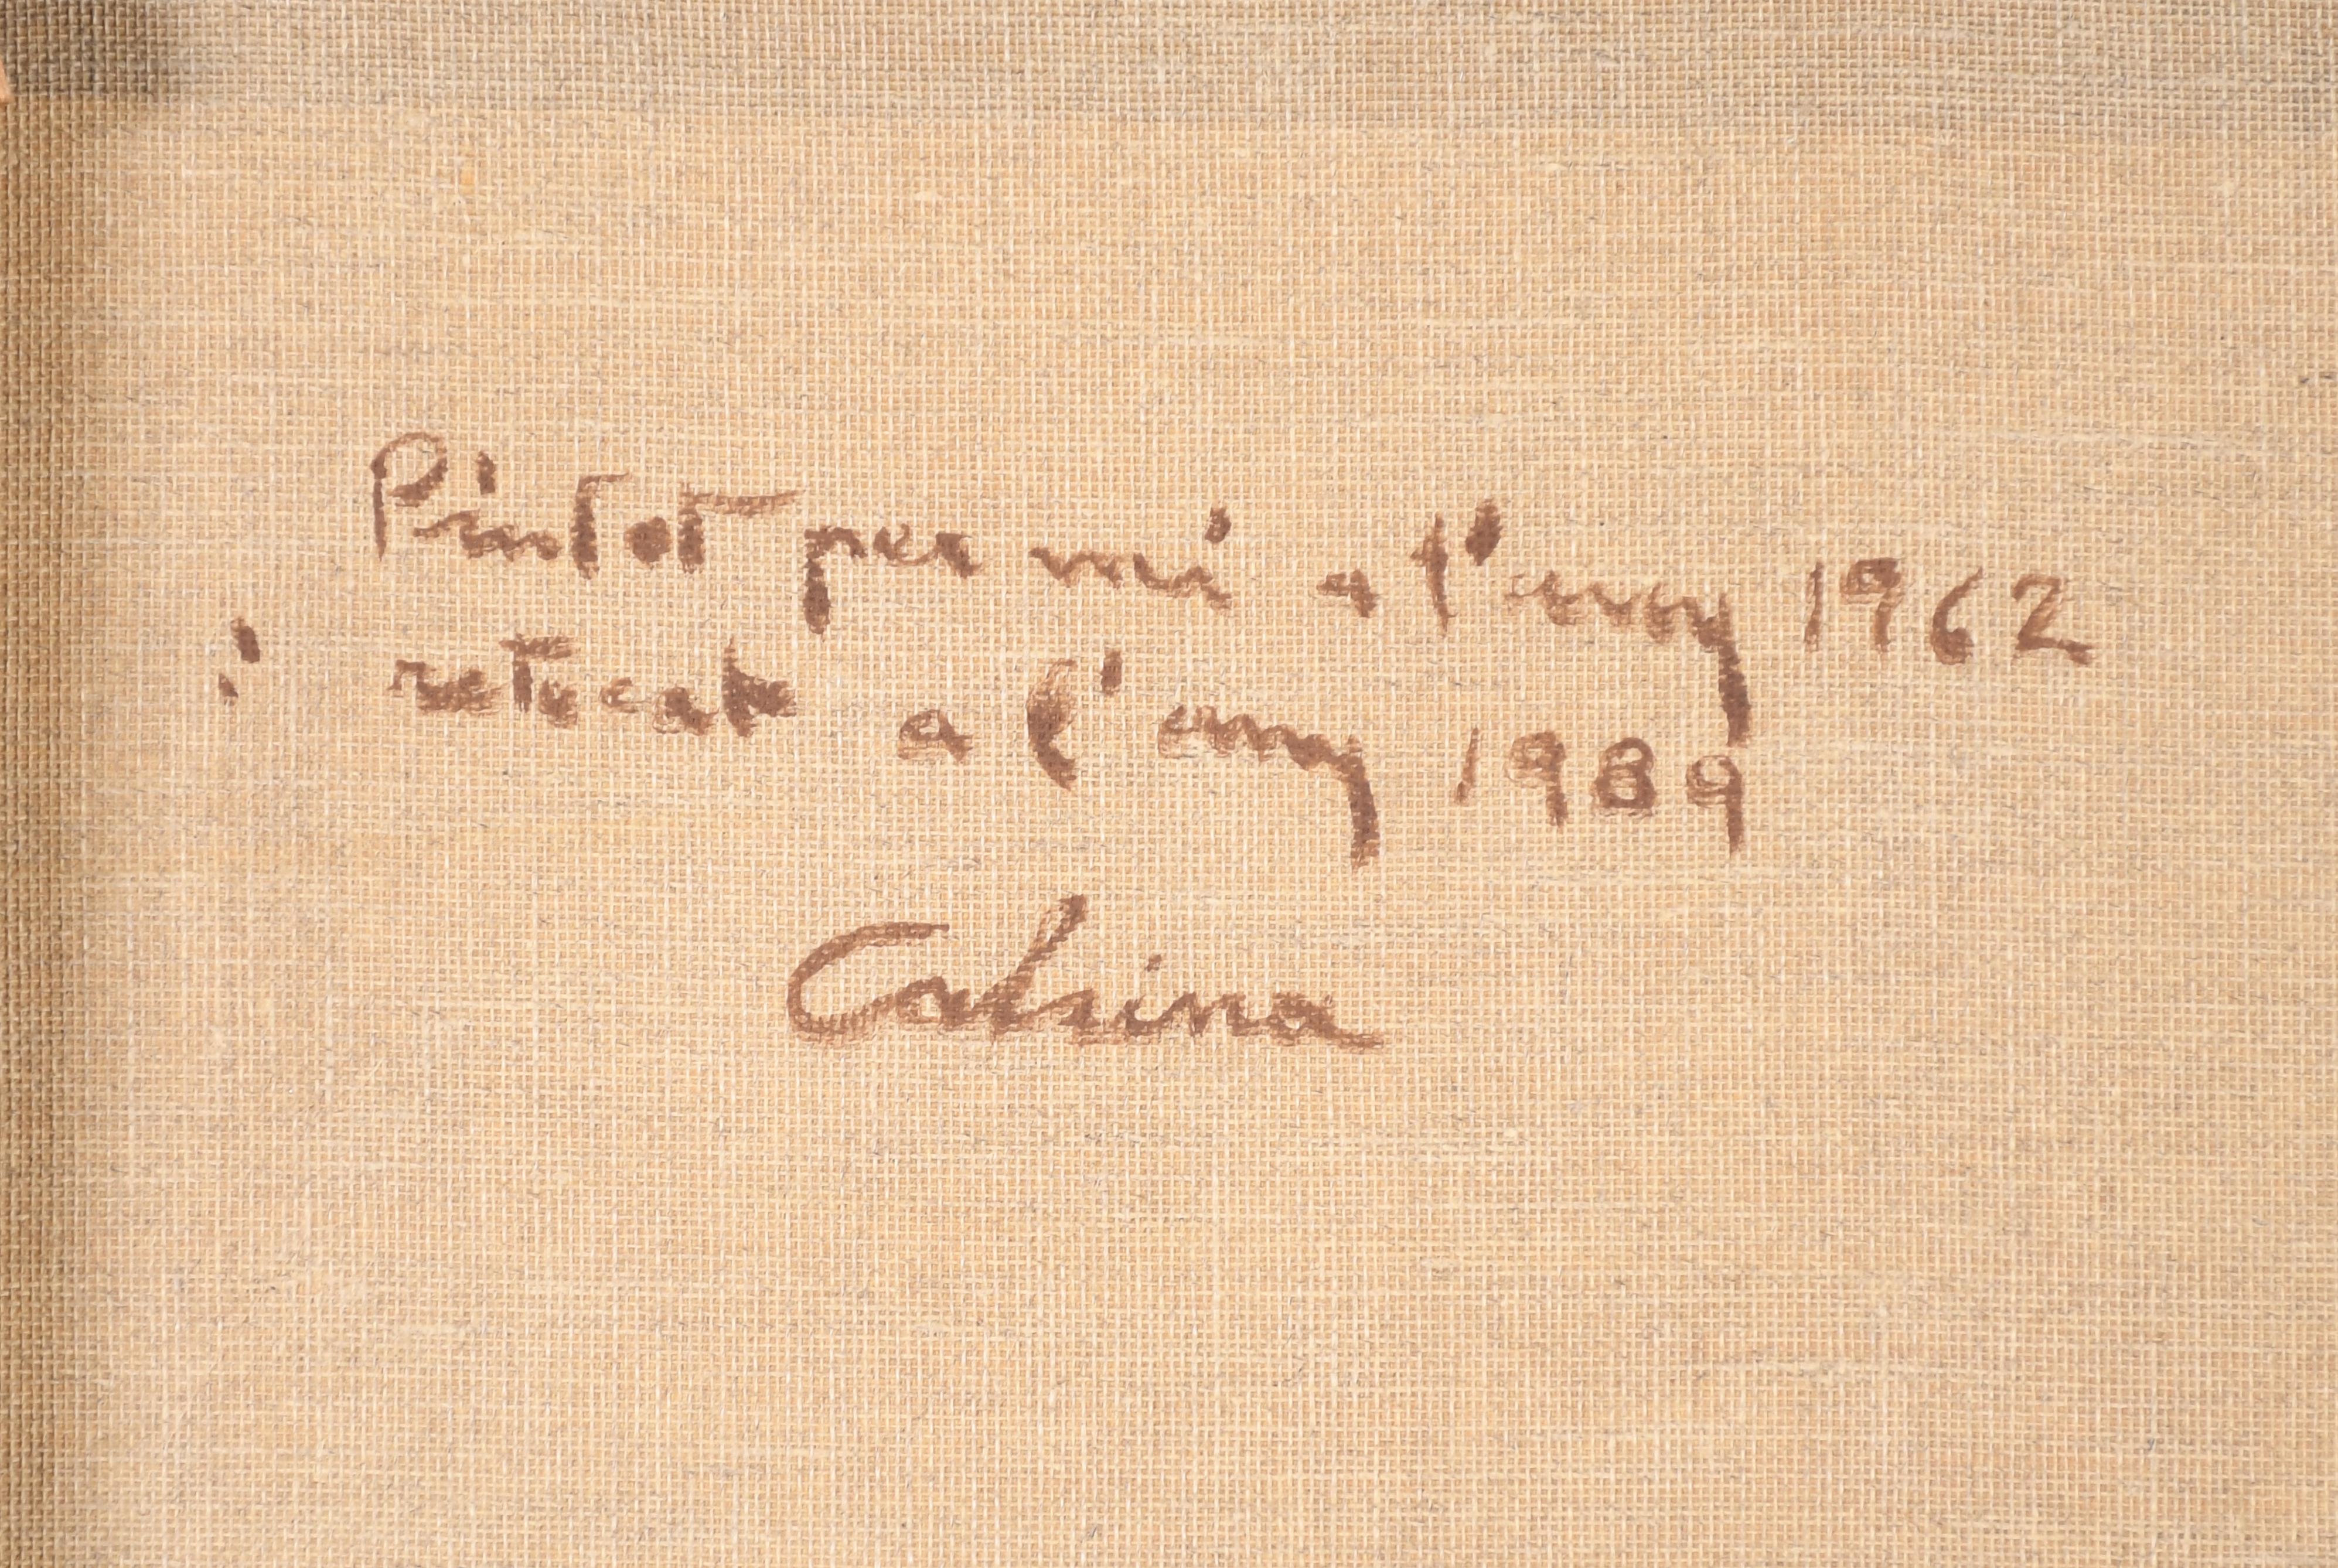 Pintat per mi a l'any 1962
i retocat a l'any 1989
Calsina